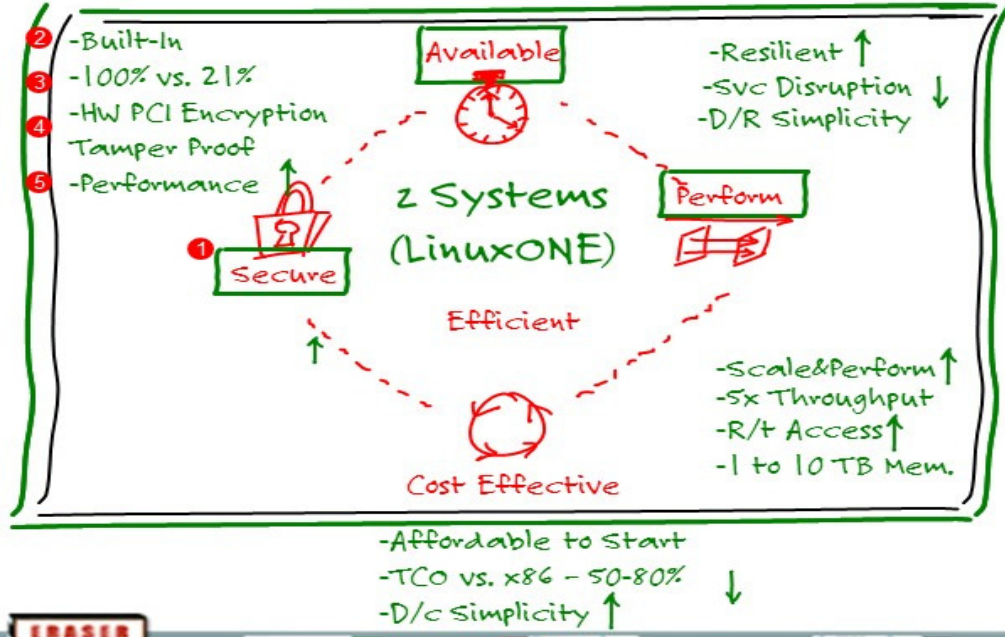 2 -Built-In
3 -100% vs. 21%
-HW PCI Encryption
4 Tamper Proof
5 -Performance
Available
-Resilient ↑
-Svc Disruption ↓
-D/R Simplicity
z Systems
(LinuxONE)
Perform
1
Secure
Efficient
-Scale&Perform ↑
-5x Throughput
-R/t Access ↑
-1 to 10 TB Mem.
Cost Effective
-Affordable to Start
-TCO vs. x86 - 50-80% ↓
-D/c Simplicity ↑
ERASER